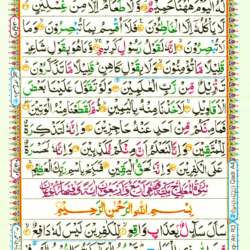 لَهُ الْيَوْمَ هٰهُنَا حَمِيْمٌ وَّلَا طَعَامٌ اِلَّا مِنْ غِسْلِيْنٍ
لَّا يَاْكُلُهٗٓ اِلَّا الْخَاطِـُٔوْنَ فَلَآ اُقْسِمُ بِمَا تُبْصِرُوْنَ وَمَا لَا
تُبْصِرُوْنَ اِنَّهٗ لَقَوْلُ رَسُوْلٍ كَرِيْمٍ وَّمَا هُوَ بِقَوْلِ شَاعِرٍ
قَلِيْلًا مَّا تُؤْمِنُوْنَ وَلَا بِقَوْلِ كَاهِنٍ قَلِيْلًا مَّا تَذَكَّرُوْنَ
تَنْزِيْلٌ مِّنْ رَّبِّ الْعٰلَمِيْنَ وَلَوْ تَقَوَّلَ عَلَيْنَا بَعْضَ
الْاَقَاوِيْلِ لَاَخَذْنَا مِنْهُ بِالْيَمِيْنِ ثُمَّ لَقَطَعْنَا مِنْهُ الْوَتِيْنَ
فَمَا مِنْكُمْ مِّنْ اَحَدٍ عَنْهُ حَاجِزِيْنَ وَاِنَّهٗ لَتَذْكِرَةٌ
لِّلْمُتَّقِيْنَ وَاِنَّا لَنَعْلَمُ اَنَّ مِنْكُمْ مُّكَذِّبِيْنَ وَاِنَّهٗ لَحَسْرَةٌ
عَلَى الْكٰفِرِيْنَ وَاِنَّهٗ لَحَقُّ الْيَقِيْنِ فَسَبِّحْ بِاسْمِ رَبِّكَ الْعَظِيْمِ
بِسْمِ اللهِ الرَّحْمٰنِ الرَّحِيْمِ
سَاَلَ سَآئِلٌۢ بِعَذَابٍ وَّاقِعٍ لِّلْكٰفِرِيْنَ لَيْسَ لَهٗ دَافِعٌ